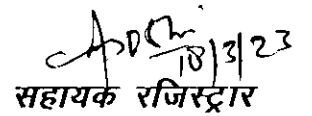 18/3/23
सहायक रजिस्ट्रार